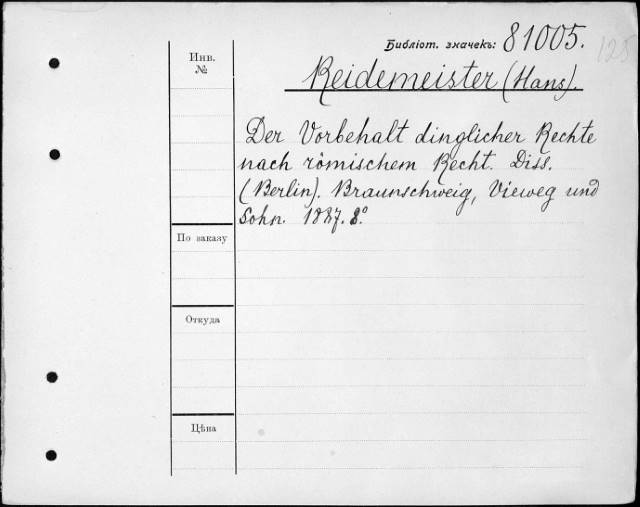 Библіот. значекъ: 81005.
125
Инв. №
Reidemeister (Hans).
Der Vorbehalt dinglicher Rechte
nach römischem Recht. Diss.
(Berlin). Braunschweig, Vieweg und
Sohn. 1887. 8°.
По заказу
Откуда
Цѣна